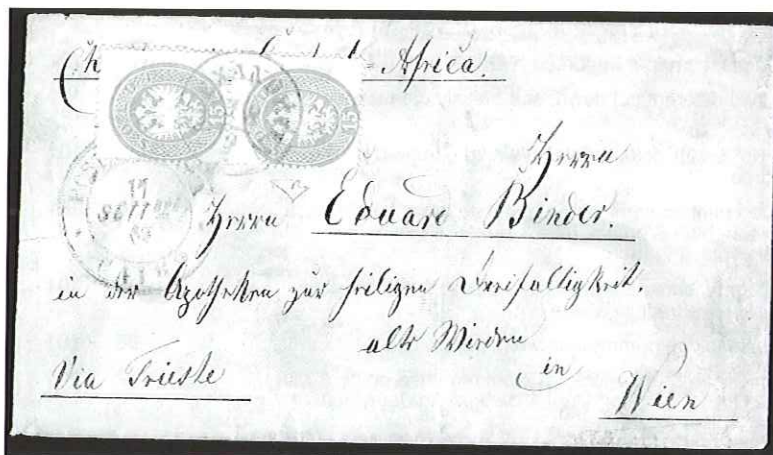 Africa.
15 15
Herrn
11
SETT
63
Herrn Eduard Binder.
in der Apotheken zur heiligen Dreifaltigkeit.
alte Wieden
in
Via Trieste
Wien